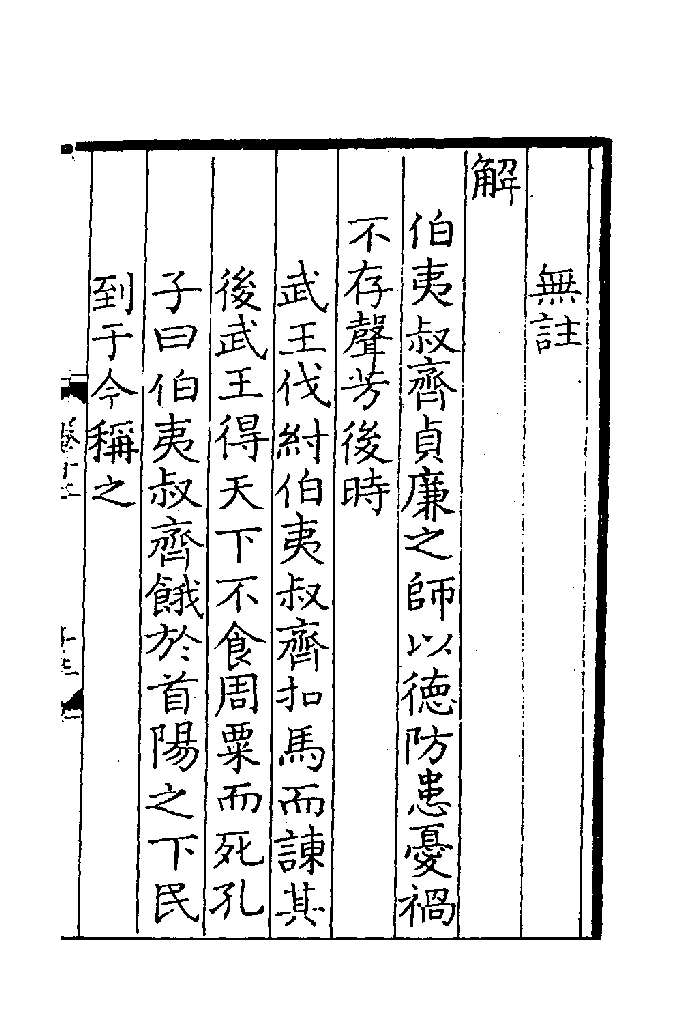 無註
解
伯夷叔齊貞廉之師以德防患憂禍
不存聲芳後時
武王伐紂伯夷叔齊扣馬而諫其
後武王得天下不食周粟而死孔
子曰伯夷叔齊餓於首陽之下民
到于今稱之